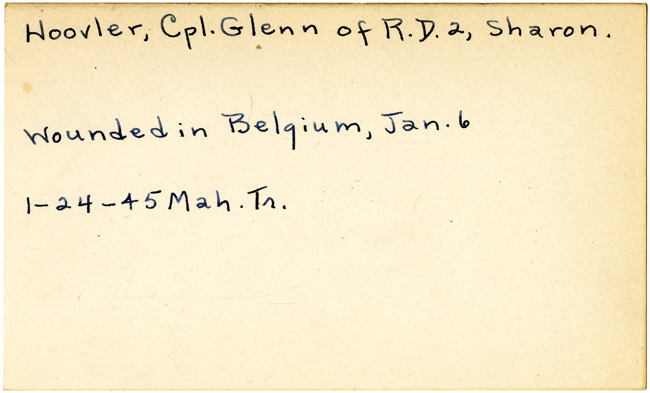 Hoovler, Cpl. Glenn of R.D. 2, Sharon.
Wounded in Belgium, Jan. 6
1-24-45 Mah. Tr.